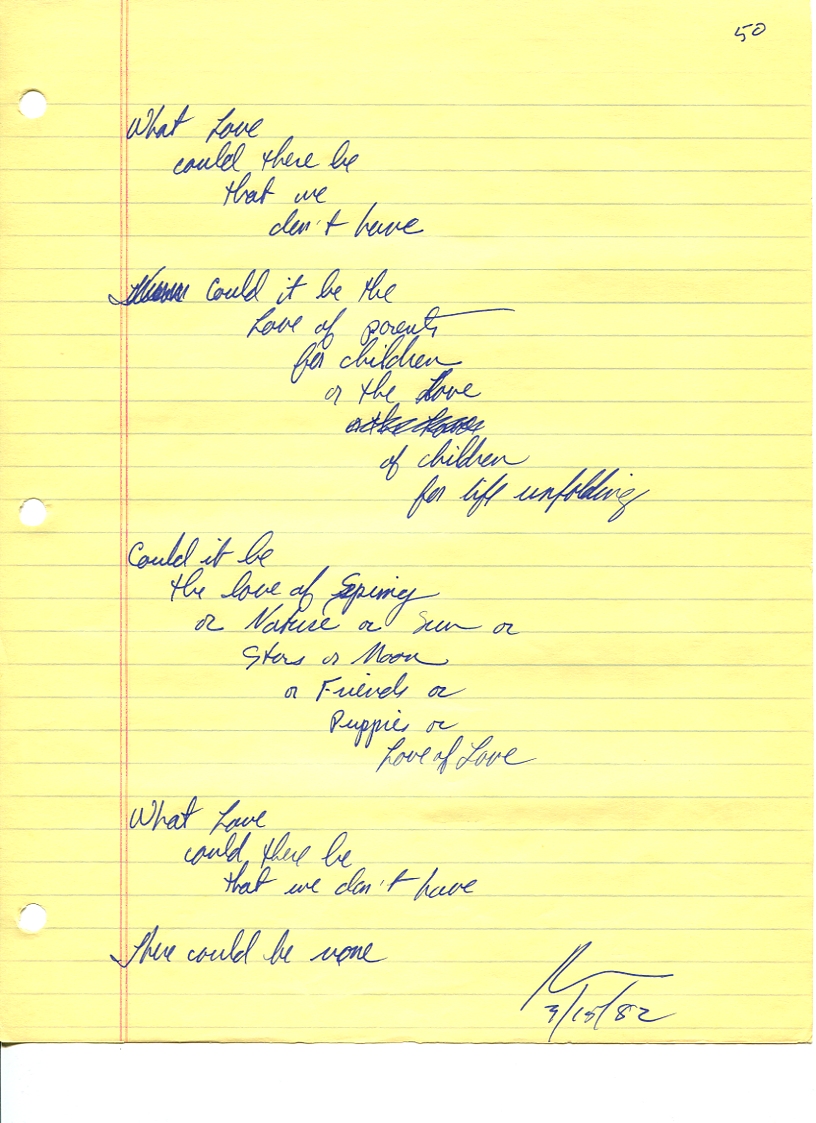 50
What Love
could there be
that we
don't have
Could it be the
Love of parents
for children
or the Love
of children
for life unfolding
Could it be
the love of Spring
or Nature or Sun or
Stars or Moon
or Friends or
Puppies or
Love of Love
What Love
could there be
that we don't have
There could be none
3/15/82